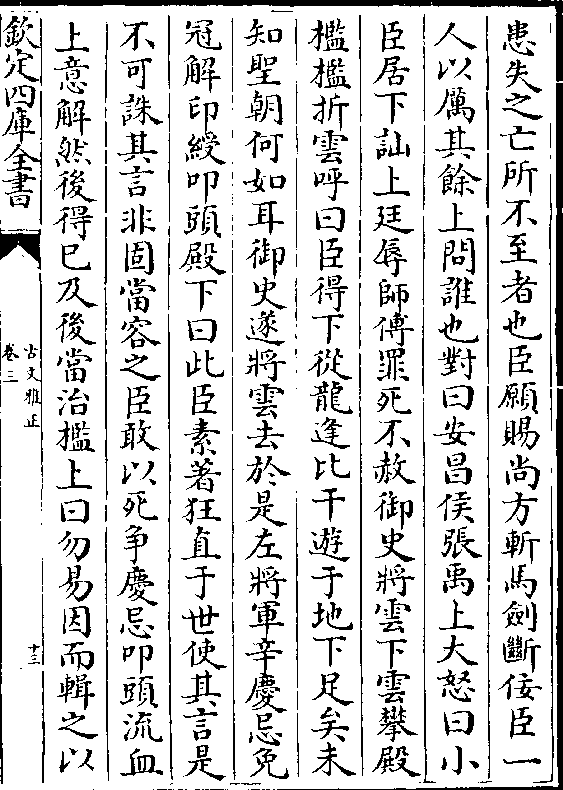 患失之亡所不至者也臣願賜尚方斬馬劍斷佞臣一
人以厲其餘上問誰也對曰安昌侯張禹上大怒曰小
臣居下訕上廷辱師傅罪死不赦御史將雲下雲攀殿
檻檻折雲呼曰臣得下從龍逢比干遊于地下足矣未
知聖朝何如耳御史遂將雲去於是左將軍辛慶忌免
冠解印綬叩頭殿下曰此臣素著狂直于世使其言是
不可誅其言非固當容之臣敢以死争慶忌叩頭流血
上意解然後得已及後當治檻上曰勿易因而輯之以
欽定四庫全書
古文雅正
卷三
十三